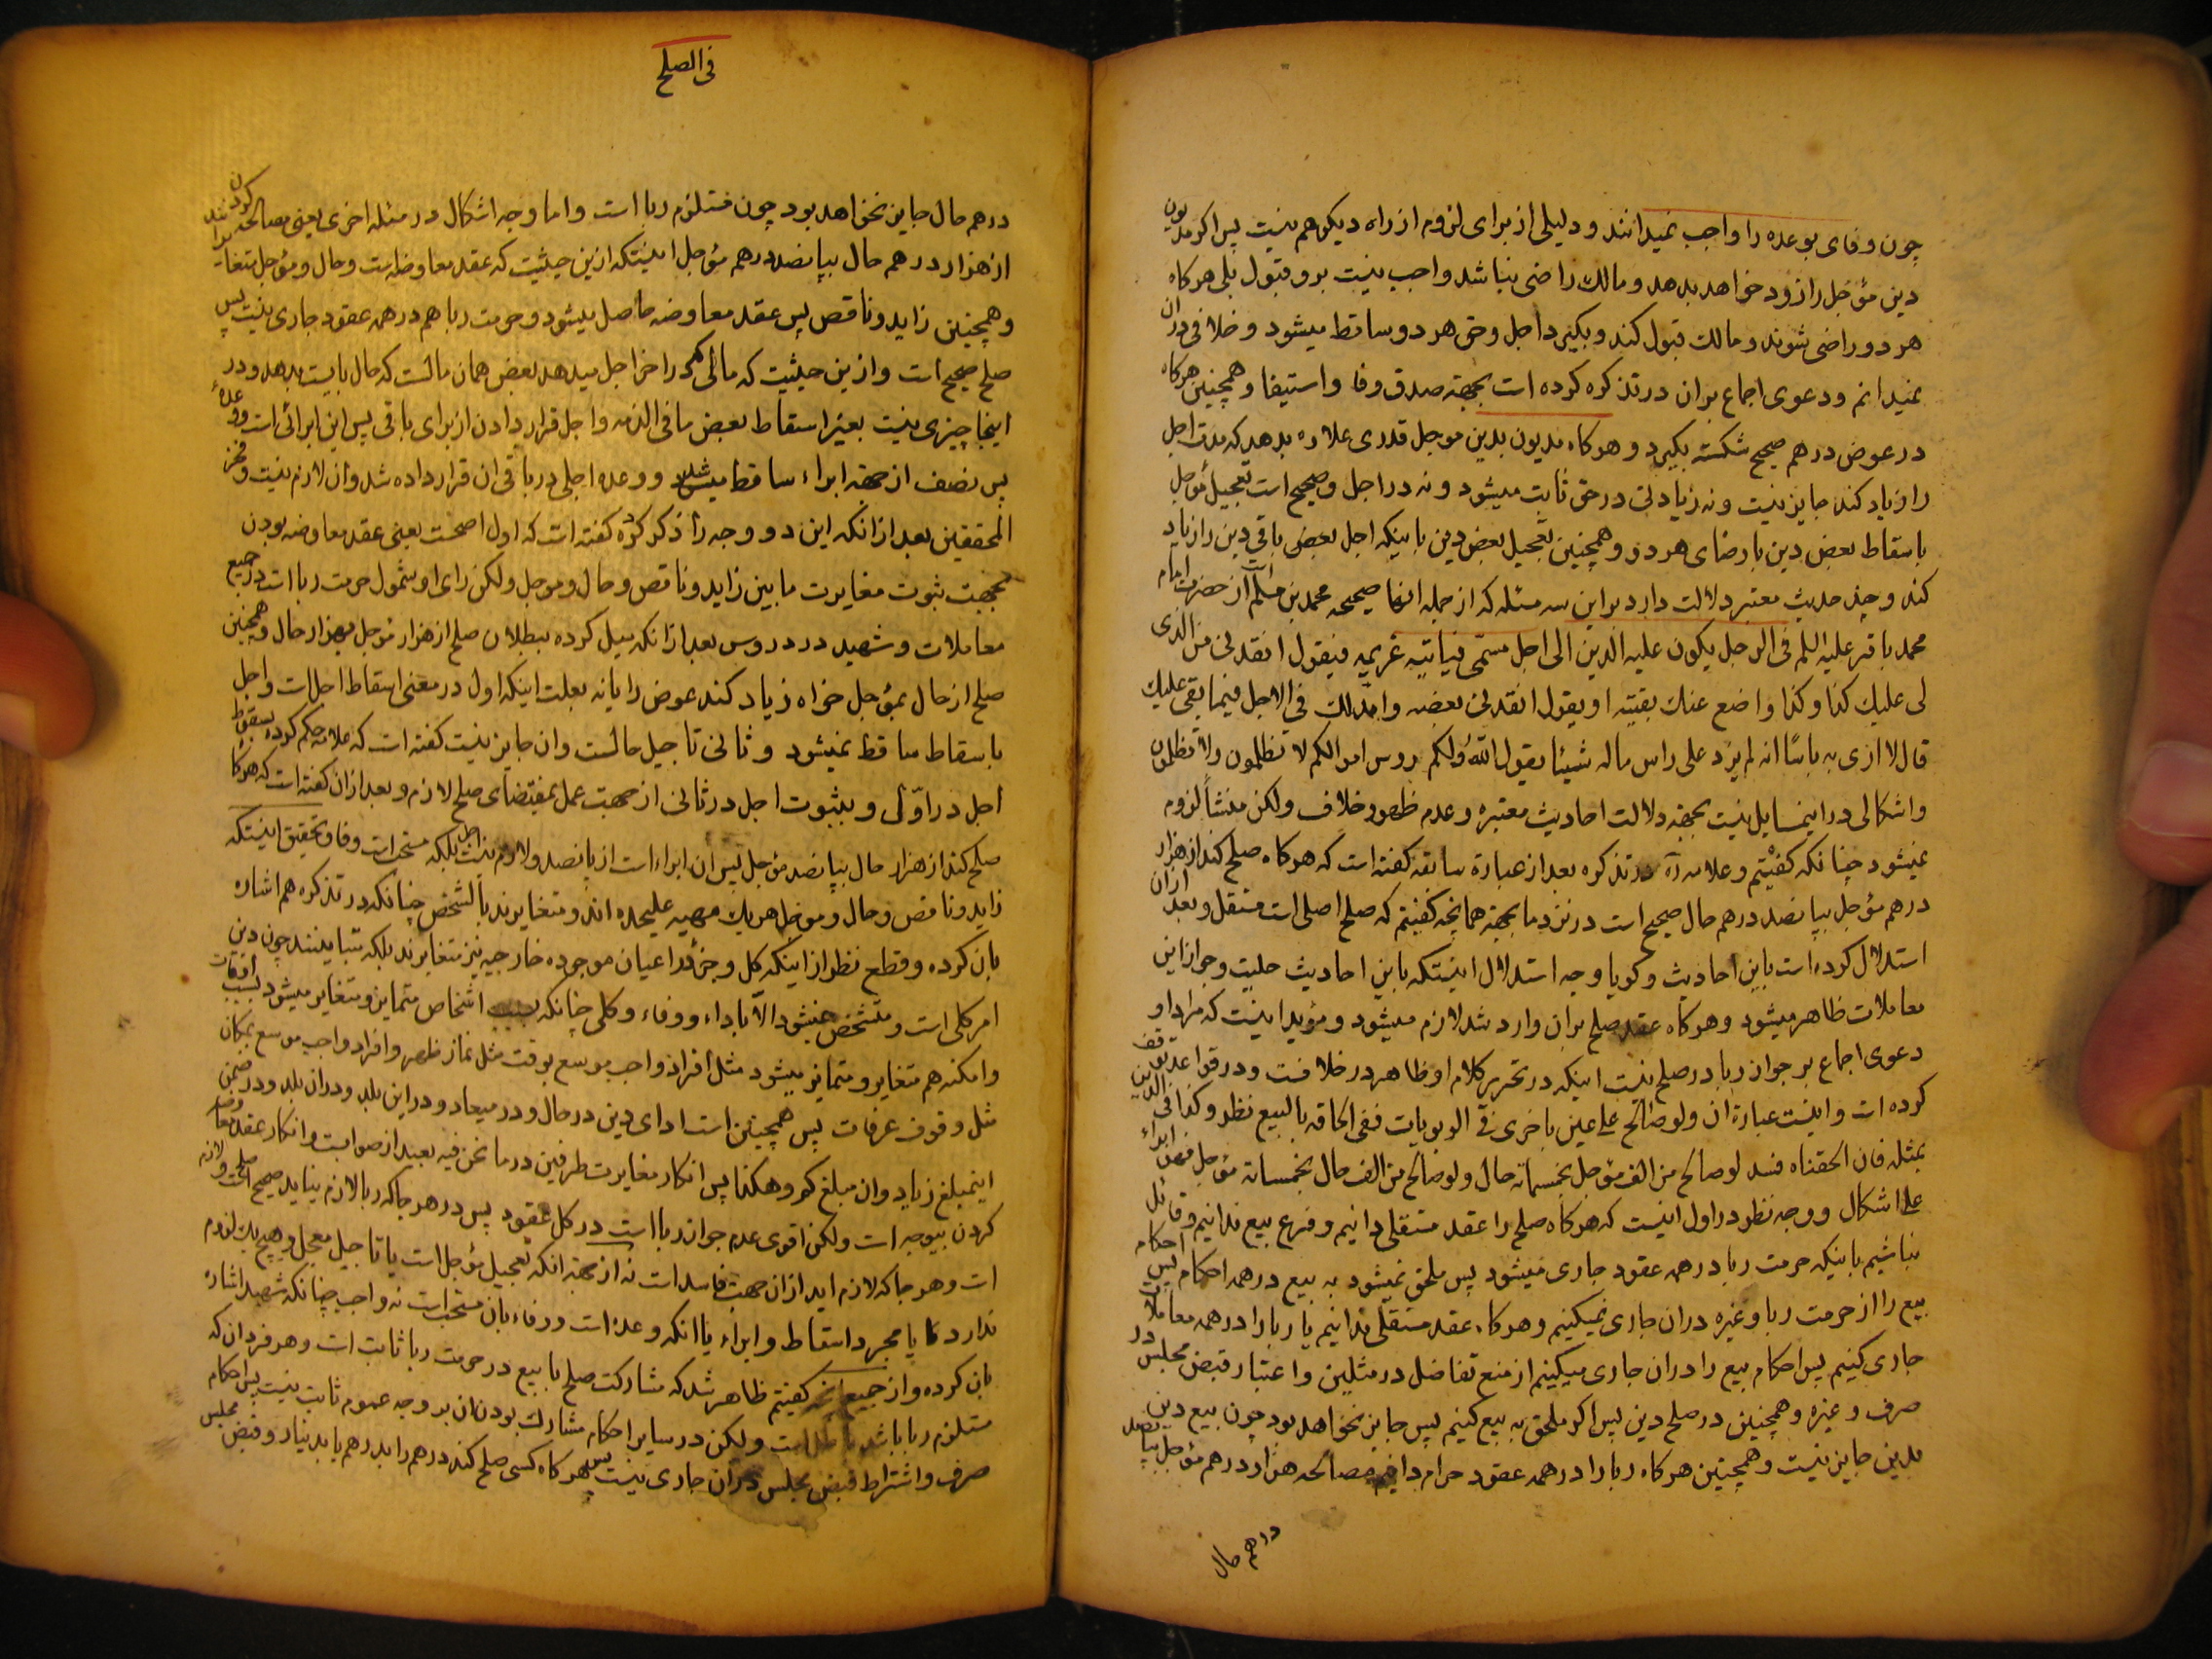 چون وفای بوعده را واجب نمیدانند و دلیلی از برای لزوم از راه دیگر هم نیست پس اگر مدیون
دین مؤجل را زود خواهد بدهد و مالک راضی نباشد واجب نیست بر و قبول بلی هرکاه
هر دو راضی شوند و مالک قبول کند و بگیرد اجل و حق هر دو ساقط میشود و خلافی دران
نمیدانم و دعوی اجماع بران در تذکره کرده است بجهة صدق وفا و استیفا و همچنین هرکاه
در عوض درهم صحیح شکسته بگیرد و هرکاه مدیون بدین موجل قدری علاوه بدهد که مدت اجل
را زیاد کند جایز نیست و نه زیادتی در حق ثابت میشود و نه در اجل و صحیح است تعجیل مؤجل
باسقاط بعض دین با رضای هر دو و همچنین تعجیل بعض دین باینکه اجل بعض باقی دین را زیاد
کند و چند حدیث معتبر دلالت دارد براین سه مسئله که از جمله انها صحیحه محمد بن مسلم از حضرت امام
محمد باقر علیه السلم فی الرجل یکون علیه الدین الی اجل مسمی فیاتیه غریمه فیقول انقدنی من الذی
لی علیک کذا و کذا و اضع عنک بقیته او یقول انقدنی بعضه و امد لک فی الاجل فیما بقی علیک
قال لا اری به باسا انه لم یزد علی راس ماله شیئا یقول الله ولکم روس اموالکم لا تظلمون ولا تظلمون
و اشکالی در اینمسایل نیست بجهة دلالت احادیث معتبره و عدم ظهور خلاف ولکن منشأ لزوم
نمیشود چنانکه کفتیم و علامه ره در تذکره بعد از عبارة سابقه کفته است که هرکاه صلح کند از هزار
درهم مؤجل بپانصد درهم حال صحیح است در نزد ما بجهة همانچه کفتیم که صلح اصلی است مستقل و بعد ازان
استدلال کرده است باین احادیث و کویا وجه استدلال اینستکه باین احادیث حلیت و جواز این
معاملات ظاهر میشود و هرکاه عقد صلح بران وارد شد لازم میشود و مؤید اینست که مراد او
دعوی اجماع بر جواز ربا در صلح نیست اینکه در تحریر کلام او ظاهر در خلافست و در قواعد توقف
کرده است و اینست عبارة ان ولو صالح علی عین باخری فی الربویات ففی الحاقه بالبیع نظر و کذا فی الدین
بمثله فان الحقناه فسد لو صالح من الف مؤجل بخمسمائة حال ولو صالح من الف حال بخمسمائة مؤجل فهو ابراء
علی اشکال و وجه نظر در اول اینست که هرکاه صلح را عقد مستقلی دانیم و فرع بیع ندانیم و قائل
نباشیم باینکه حرمت ربا در همه عقود جاری میشود پس ملحق نمیشود به بیع در همه احکام پس احکام
بیع را از حرمت ربا و غیره دران جاری نمیکنیم و هرکاه عقد مستقلی ندانیم یا ربا را در همه معاملات
جاری کنیم پس احکام بیع را دران جاری میکنیم از منع تفاضل در مثلین و اعتبار قبض مجلس در
صرف و غیره و همچنین در صلح دین پس اکر ملحق به بیع کنیم پس جایز نخواهد بود چون بیع دین
بدین جایز نیست و همچنین هرکاه ربا را در همه عقود حرام دانیم مصالحه هزار درهم مؤجل بپانصد
درهم حال
فی الصلح
درهم حال جایز نخواهد بود چون مستلزم ربا است و اما وجه اشکال در مسئله اخری یعنی مصالحه کردن
از هزار درهم حال بپانصد درهم مؤجل اینستکه ازین حیثیت که عقد معاوضه است و حال و مؤجل متغایرند
و همچنین زاید و ناقص پس عقد معاوضه حاصل میشود و حرمت ربا هم در همه عقود جاری نیست پس
صلح صحیح است و ازین حیثیت که مالی که در اخر اجل میدهد بعض همان مالست که حال بایست بدهد و در
اینجا چیزی نیست بغیر اسقاط بعض ما فی الذمه و اجل قرار دادن از برای باقی پس این ابرائی است و وعدهٔ
پس نصف از جهة ابراء ساقط میشود و وعده اجلی در باقی ان قرار داده شد وان لازم نیست و فخر
المحققین بعد از انکه این دو وجه را ذکر کرده کفته است که اول اصحست یعنی عقد معاوضه بودن
بجهت ثبوت مغایرت مابین زاید و ناقص و حال و موجل ولکن رای او شمول حرمت ربا است در جمیع
معاملات و شهید در دروس بعد از انکه میل کرده ببطلان صلح از هزار مؤجل بهزار حال و همچنین
صلح از حال بمؤجل خواه زیاد کند عوض را یا نه بعلت اینکه اول در معنی اسقاط اجل است و اجل
باسقاط ساقط نمیشود و ثانی تاجیل حالست وان جایز نیست کفته است که علامه حکم کرده بسقوط
اجل در اوّل و بثبوت اجل در ثانی از جهت عمل بمقتضای صلح لازم و بعد ازان کفته است که هرکا
صلح کند از هزار حال بپانصد مؤجل پس ان ابراء است از پانصد و لازم نیست اجل بلکه مستحب است وفا و تحقیق اینستکه
زاید و ناقص و حال و موجل هر یک مهیه علیحده اند و متغایرند بالشخص چنانکه در تذکره هم اشاره
بان کرده و قطع نظر از اینکه کل و جزء در اعیان موجوده خارجیه نیز متغایرند بلکه متباینند چون دین
امر کلی است و متشخص نمیشود الّا باداء و وفاء و کلی چنانکه بسبب اشخاص متمایز و متغایر میشود بسبب اوقات
و امکنه هم متغایر و متمایز میشود مثل افراد واجب موسع بوقت مثل نماز ظهر و افراد واجب موسع بمکان
مثل وقوف عرفات پس همچنین است ادای دین در حال و در میعاد و در این بلد و دران بلد و در ضمن
اینمبلغ زیاد وان مبلغ کم و هکذا پس انکار مغایرت طرفین در ما نحن فیه بعید از صوابست و انکار عقد معاوضه
کردن بیوجه است ولکن اقوی عدم جواز ربا است در کل عقود پس در هر جا که ربا لازم نیاید صحیح است صلح و لازم
است و هر جا که لازم اید ازان جهت فاسد است نه از جهة انکه تعجیل مؤجل است یا تاجیل معجل و هیچ یک لزوم
ندارد یا مجرد اسقاط و ابراء یا انکه وعده است و وفاء بان مستحب است نه واجب چنانکه شهید اشاره
بان کرده و از جمیع انچه کفتیم ظاهر شد که مشارکت صلح با بیع در حرمت ربا ثابت است و هر فرد ان که
مستلزم ربا باشد باطل است ولکن در سایر احکام مشارک بودن ان بر وجه عموم ثابت نیست پس احکام
صرف و اشتراط قبض مجلس دران جاری نیست پس هرکاه کسی صلح کند درهم را بدرهم یا بدینار و قبض مجلس